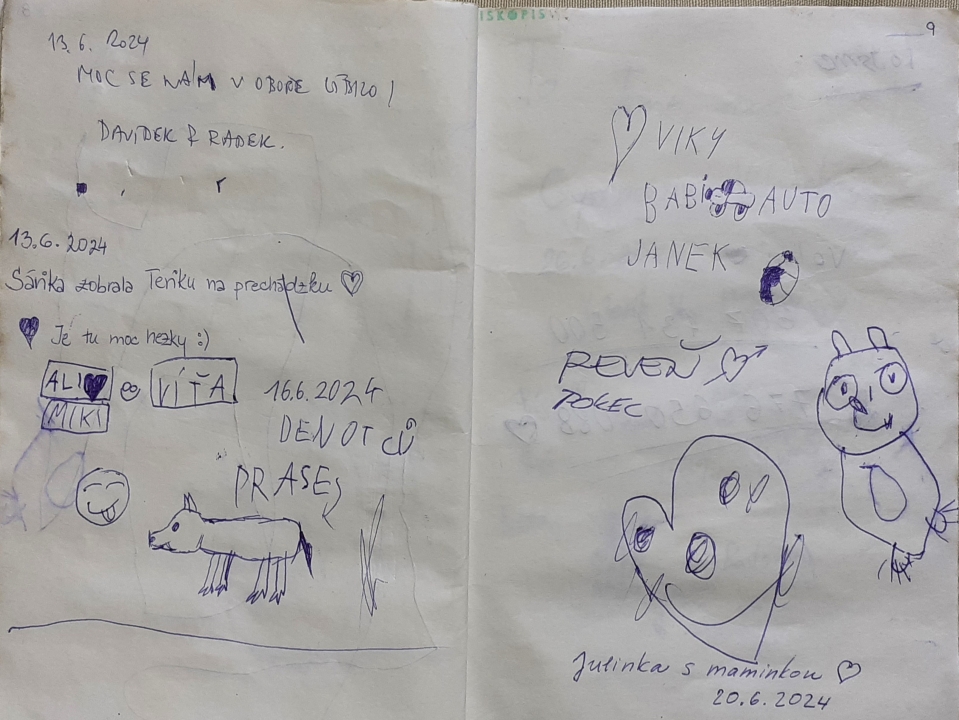 13. 6. 2024
MOC SE NÁM V OBOŘE LÍBILO!
DAVÍDEK & RADEK.
13.6.2024
Sárika zobrala Terıku na prechádzku
Je tu moc hezky :)
ALI
VÍŤA
MIKI
16.6.2024
DEN OTCŮ
PRASE
ISKOPIS
9
VIKY
BABI AUTO
JANEK
Julinka s maminkou
20.6.2024